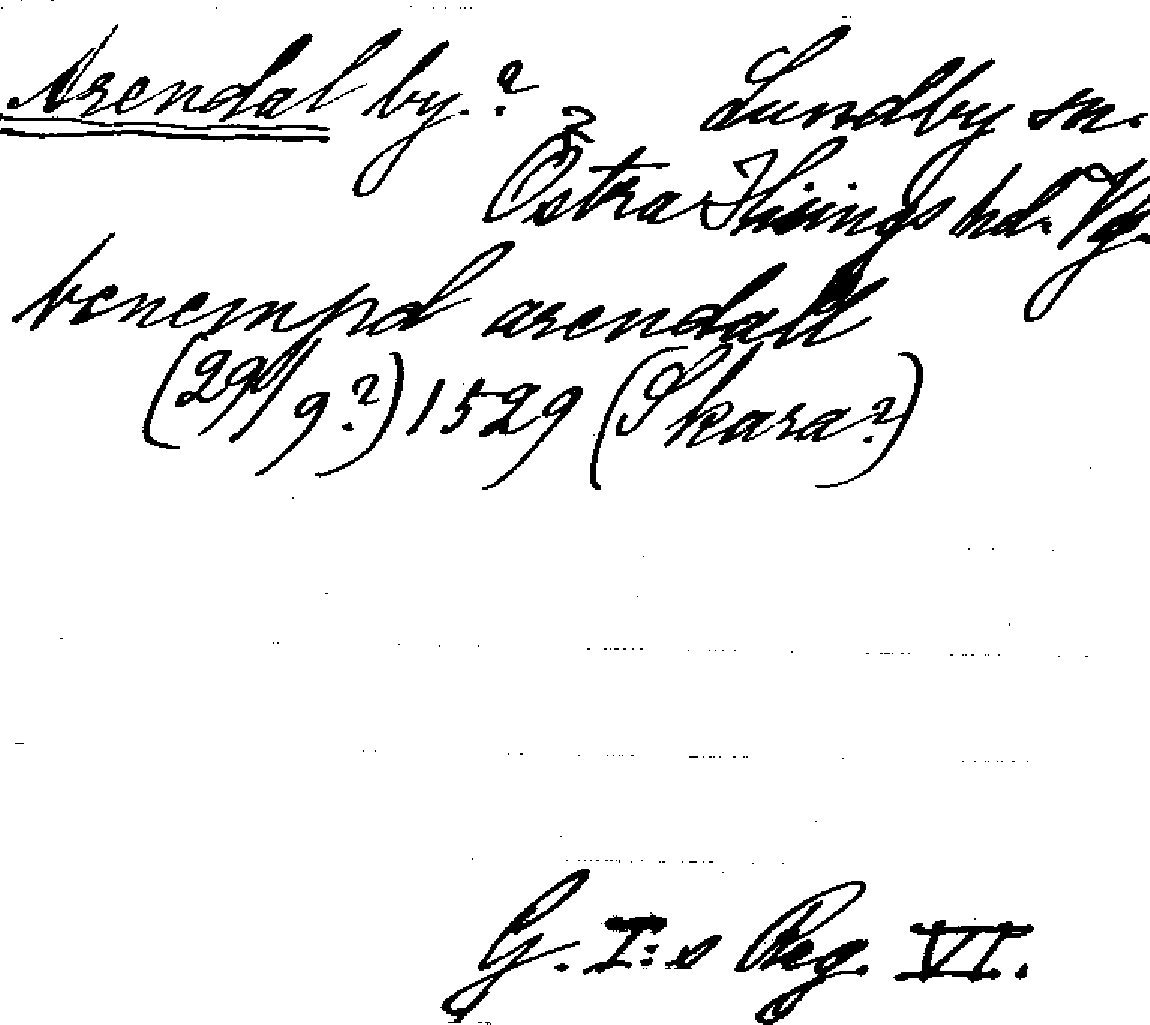 Arendal by.? Lundby sn.
Östra Hisings hd. Vg.
benempd arendall
(29/9?) 1529 (Skara?)
G. I:s Reg. VI.